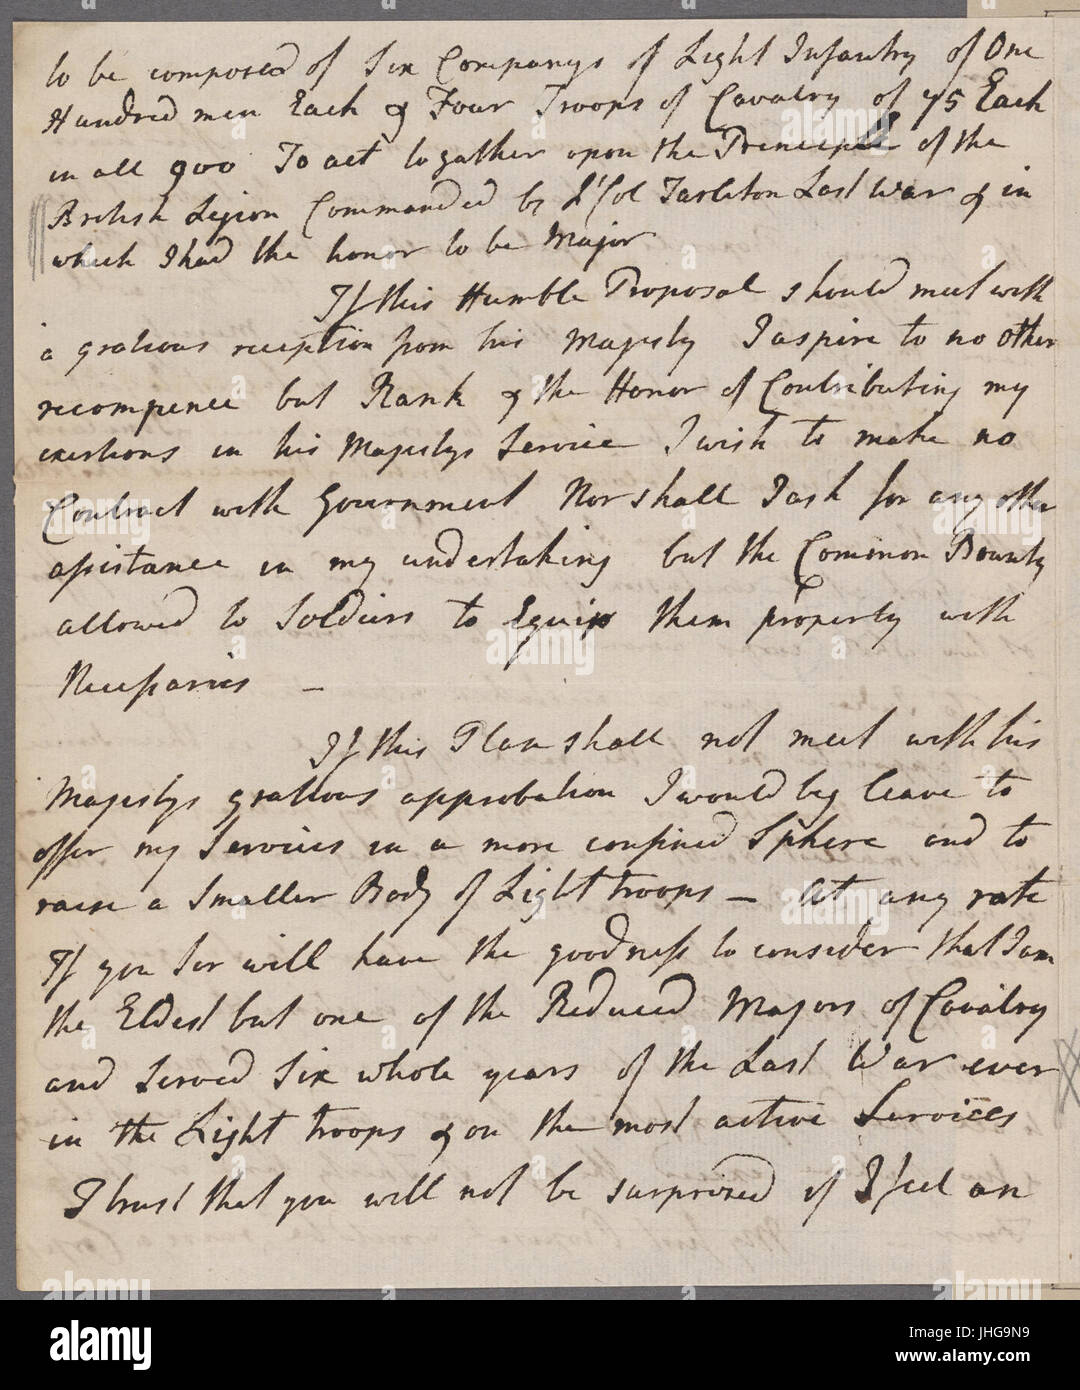 to be composed of Six Companys of Light Infantry of One
Hundred men Each & Four Troops of Cavalry of 75 Each
in all 900 To act togather upon the Principls of the
British Legion Commanded by Lt Col Tarleton Last War & in
which I had the honor to be Major
If this Humble Proposal should meet with
a gratious reception from his Majesty I aspire to no other
recompence but Rank & the Honor of Contributing my
exertions in his Majestys Service I wish to make no
Contract with Government Nor shall I ask for any other
assistance in my undertaking but the Common Bounty
allowed to Soldiers to Equip them properly with
Necessaries —
If this Plan shall not meet with his
Majestys gratious approbation I would beg leave to
offer my Services in a more confined Sphere and to
raise a Smaller Body of Light troops — At any rate
If you Sir will have the goodness to consider that I am
the Eldest but one of the Reduced Majors of Cavalry
and Served Six whole years of the Last War ever
in the Light troops & on the most active Services
I trust that you will not be surprised if I feel an
alamy stock photo
alamy
alamy stock photo
JHG9N9
www.alamy.com